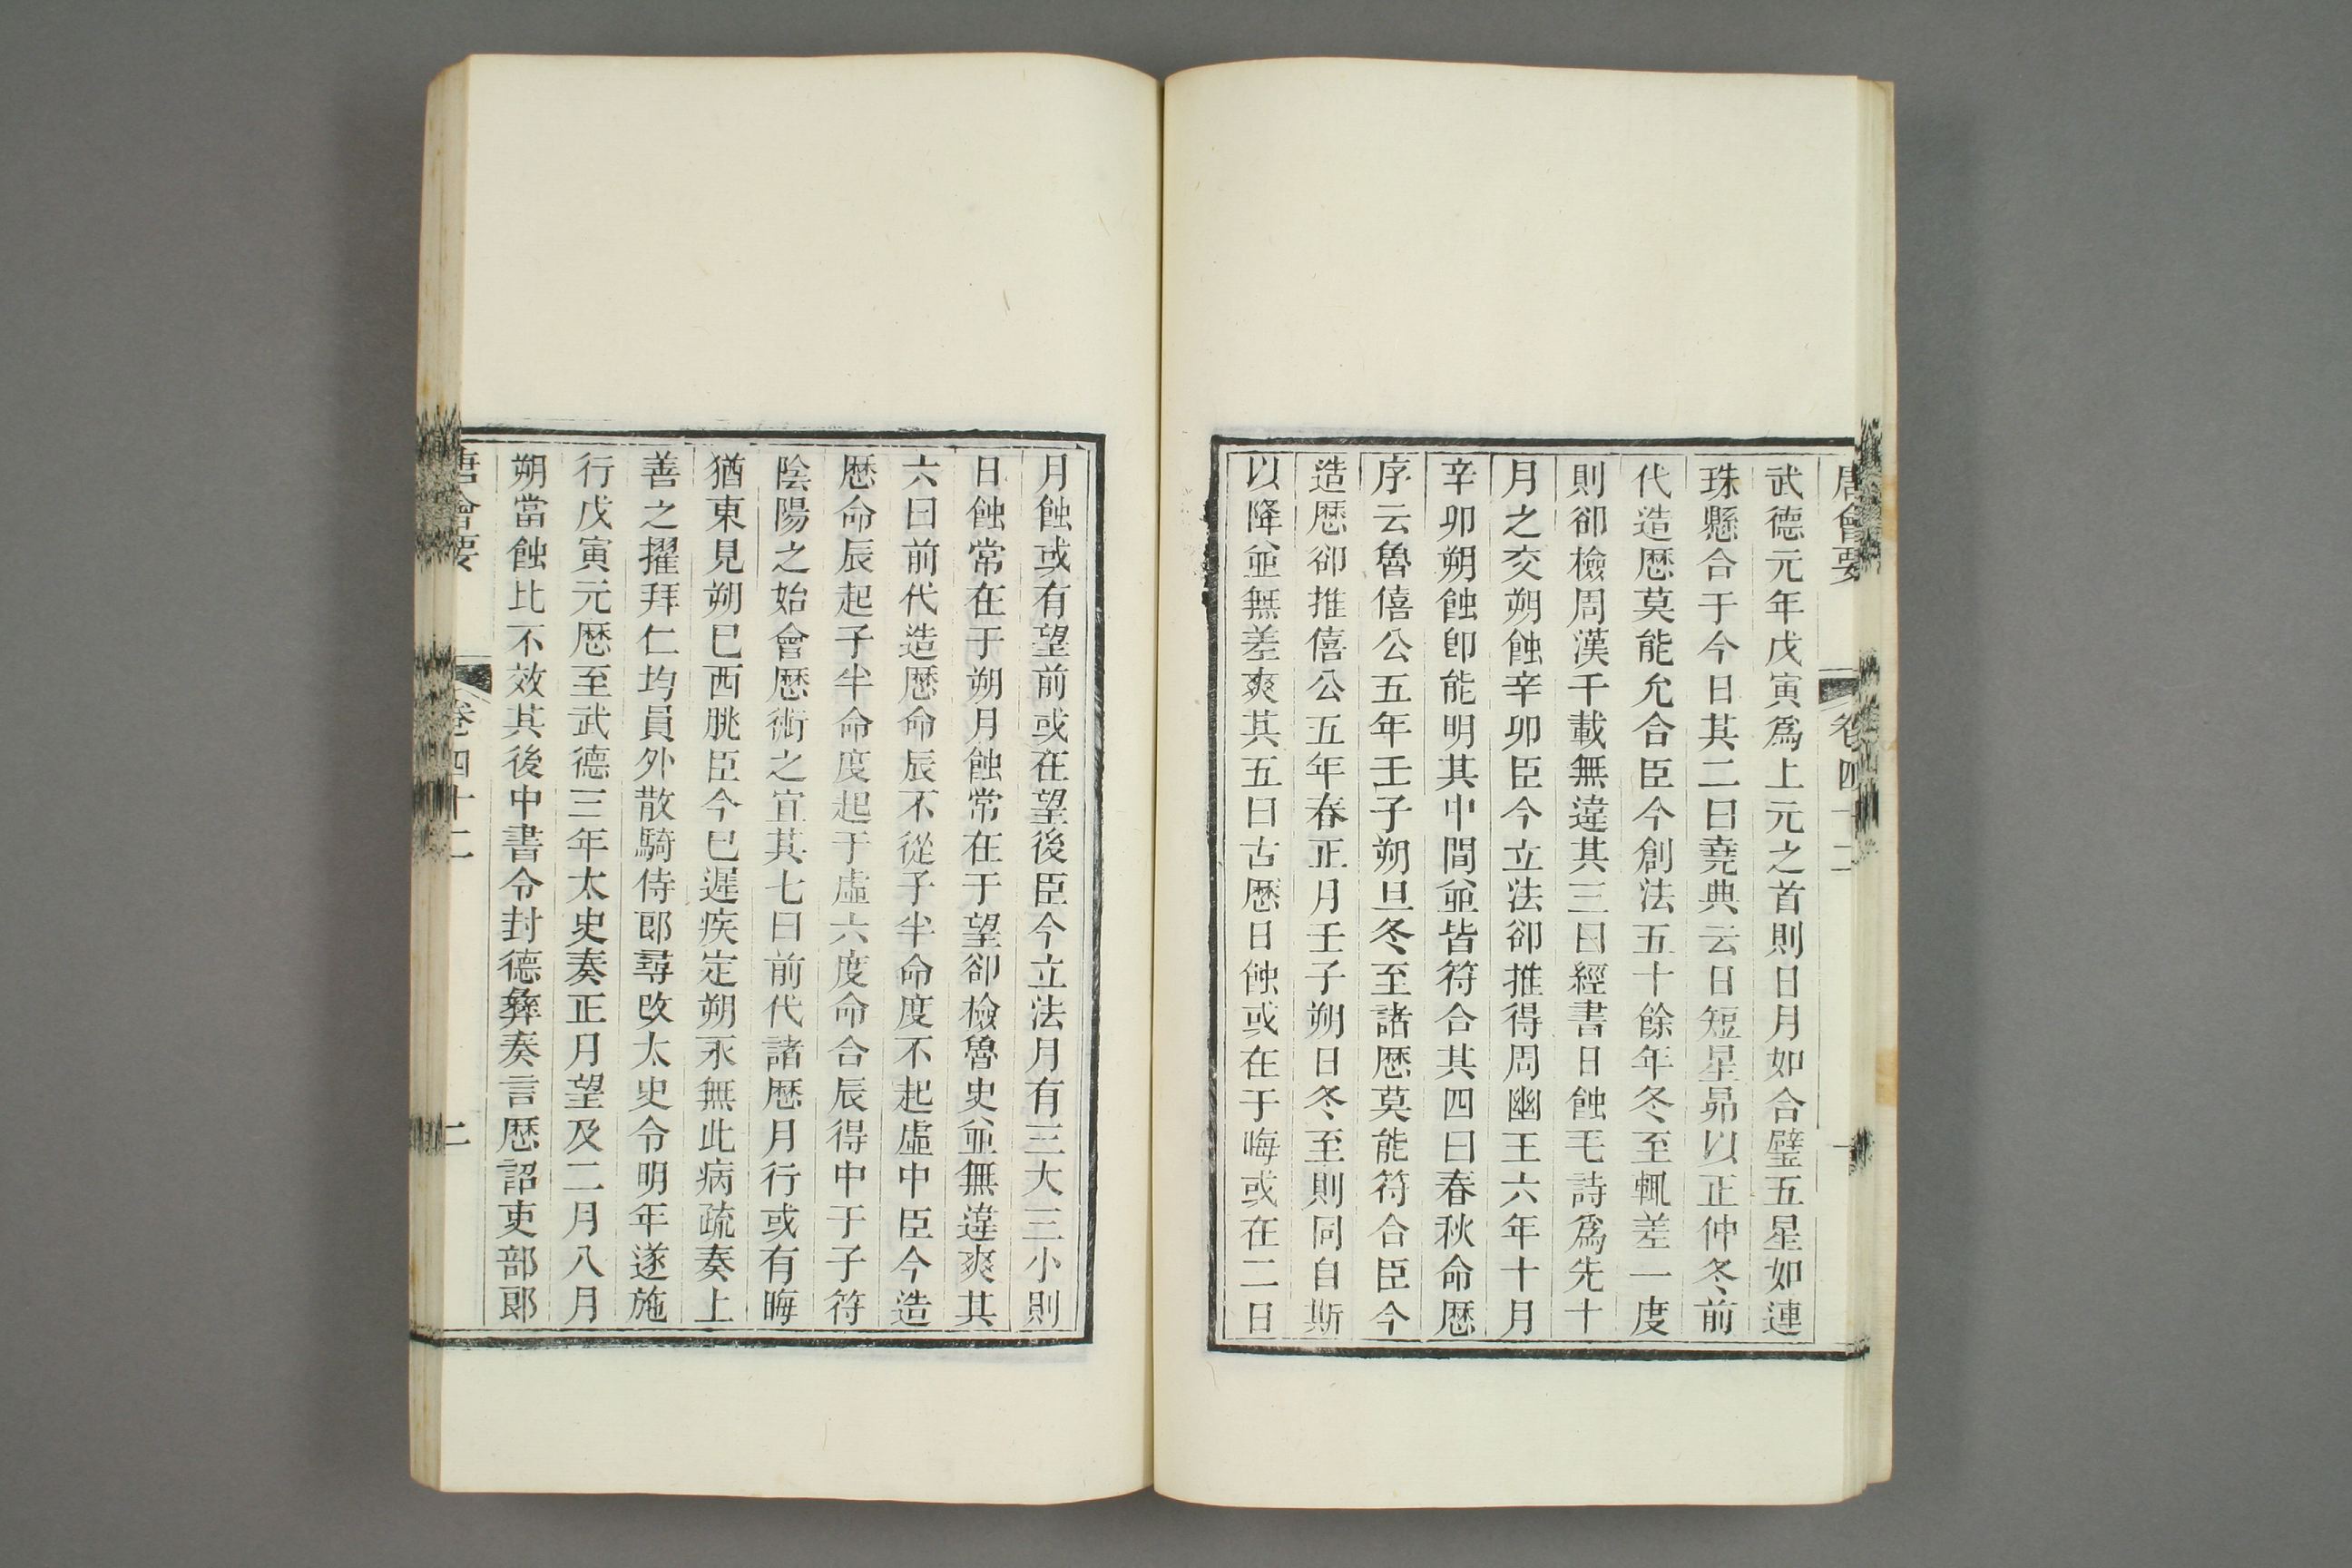 唐會要 卷四十二 一
武德元年戊寅爲上元之首則日月如合璧五星如連
珠懸合于今日其二曰堯典云日短星昴以正仲冬前
代造歷莫能允合臣今創法五十餘年冬至輒差一度
則卻檢周漢千載無違其三曰經書日蝕毛詩爲先十
月之交朔蝕辛卯臣今立法卻推得周幽王六年十月
辛卯朔蝕卽能明其中間並皆符合其四曰春秋命歷
序云魯僖公五年壬子朔旦冬至諸歷莫能符合臣今
造歷卻推僖公五年春正月壬子朔日冬至則同自斯
以降並無差爽其五曰古歷日蝕或在于晦或在二日
月蝕或有望前或在望後臣今立法月有三大三小則
日蝕常在于朔月蝕常在于望卻檢魯史並無違爽其
六曰前代造歷命辰不從子半命度不起虛中臣今造
歷命辰起子半命度起于虛六度命合辰得中于子符
陰陽之始會歷術之宜其七曰前代諸歷月行或有晦
猶東見朔巳西朓臣今巳遲疾定朔永無此病疏奏上
善之擢拜仁均員外散騎侍郎尋改太史令明年遂施
行戊寅元歷至武德三年太史奏正月望及二月八月
朔當蝕比不效其後中書令封德彝奏言歷詔吏部郎
唐會要 卷四十二 二